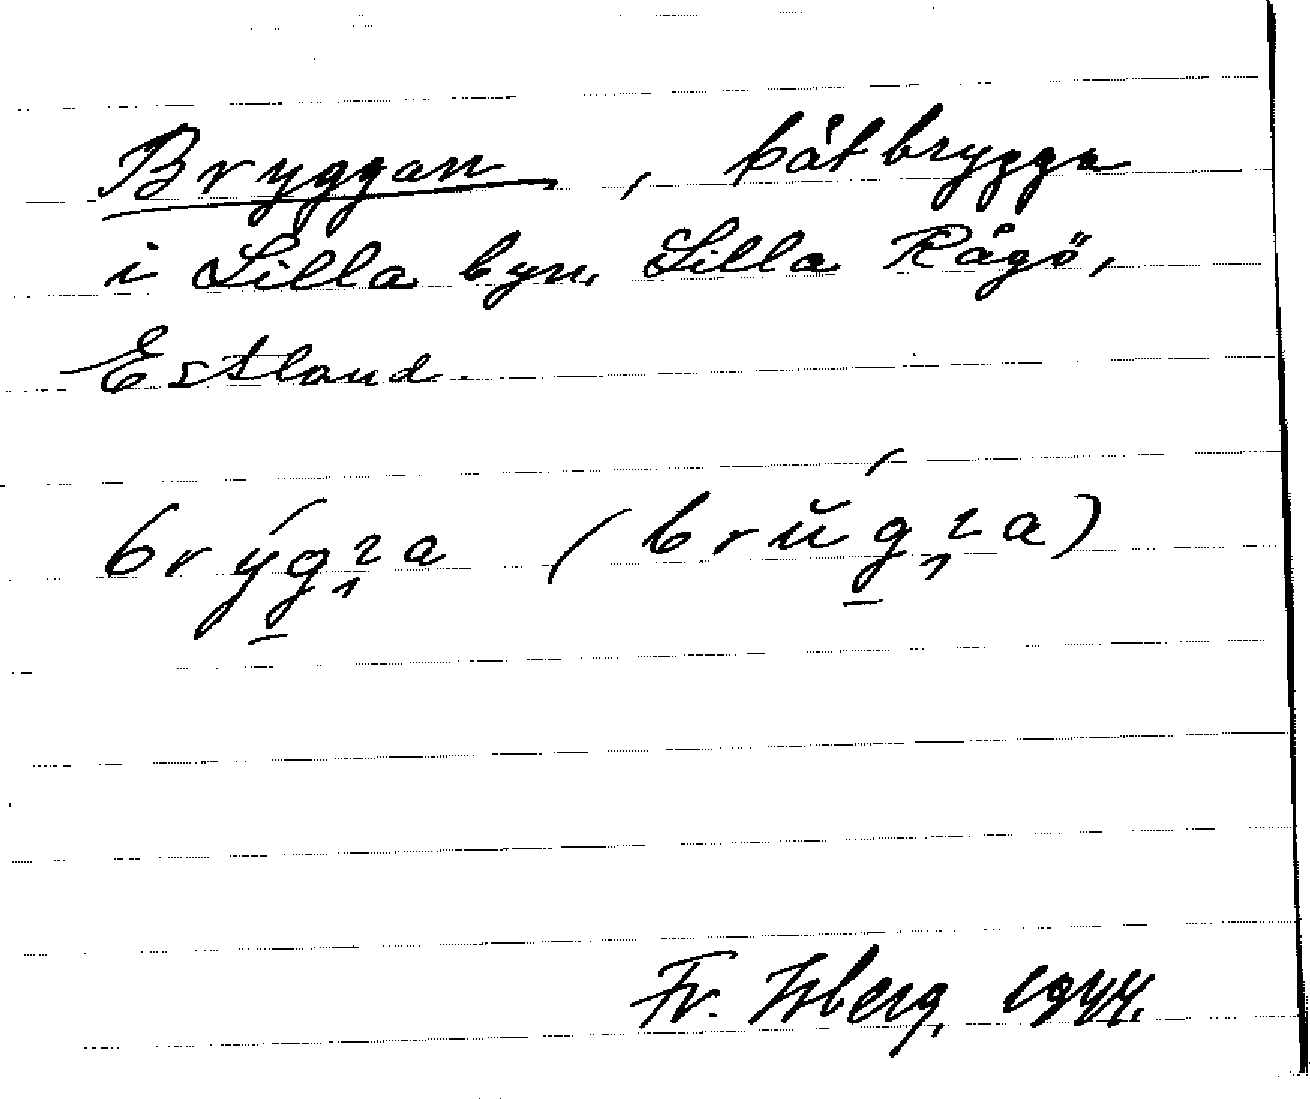 Bryggan, båtbrygga
i Lilla byn, Lilla Rågö,
Estland.
brýgza (brŭǵza)
Fr. Isberg, 1944.